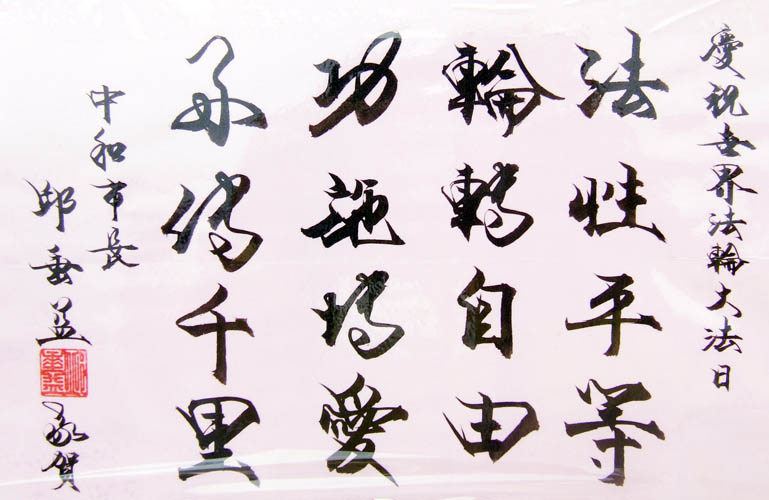 慶祝世界法輪大法日
法性平等
輪轉自由
功施博愛
好傳千里
中和市長
邱垂益 敬賀